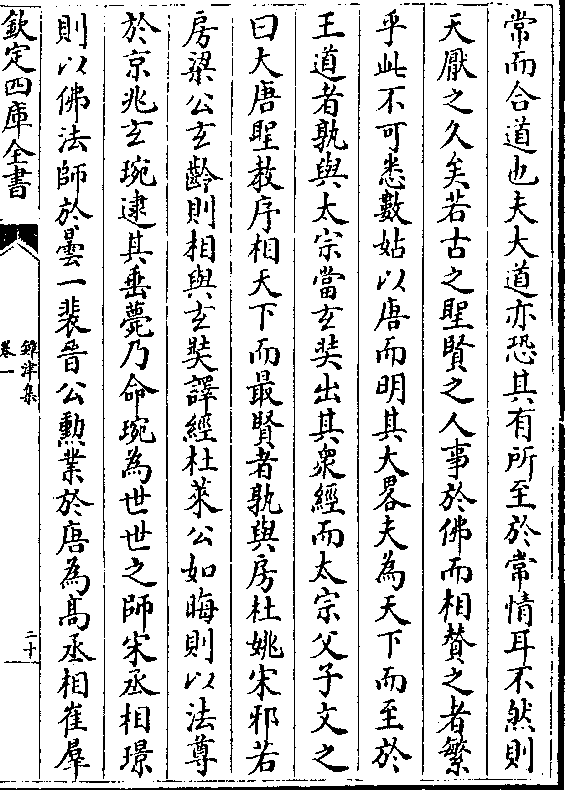 常而合道也夫大道亦恐其有所至於常情耳不然則
天厭之久矣若古之聖賢之人事於佛而相賛之者繁
乎此不可悉數姑以唐而明其大畧夫為天下而至於
王道者孰與太宗當玄奘出其衆經而太宗父子文之
曰大唐聖教序相天下而最賢者孰與房杜姚宋邪若
房梁公玄齡則相與玄奘譯經杜萊公如晦則以法尊
於京兆玄琬逮其垂薨乃命琬為世世之師宋丞相璟
則以佛法師於曇一裴晉公勲業於唐為髙丞相崔羣
欽定四庫全書
鐔津集
卷一
二十